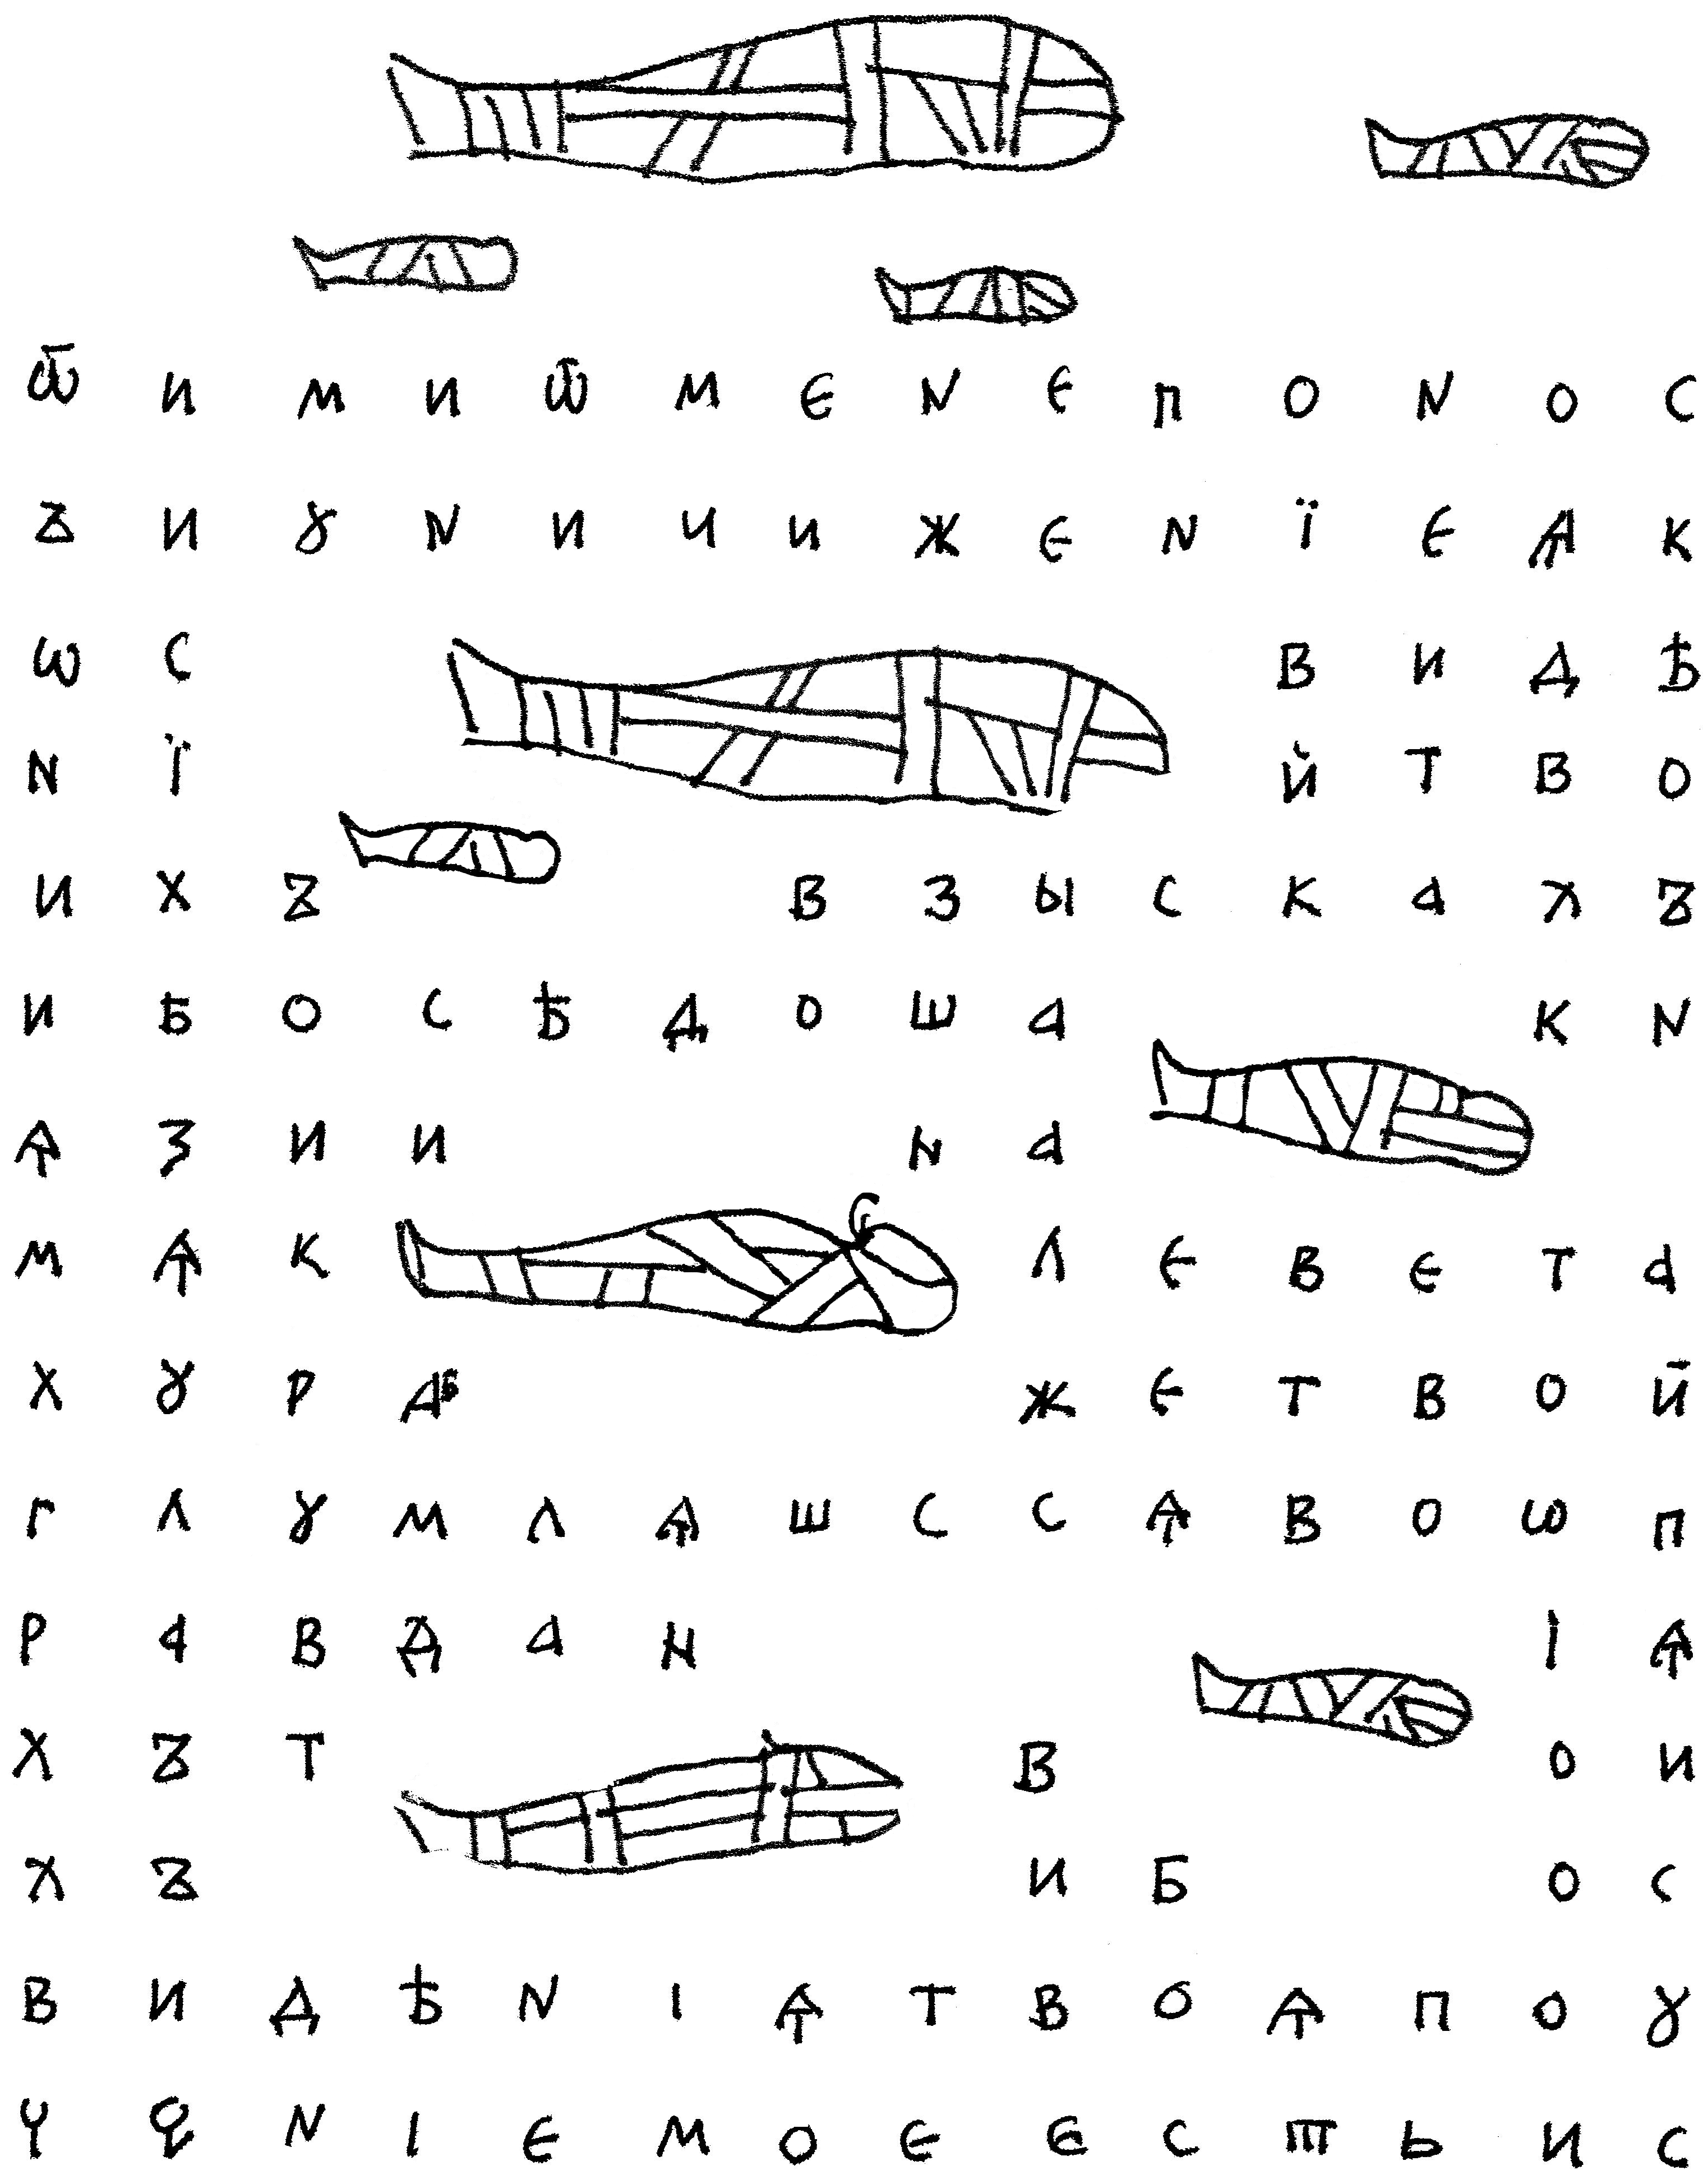 Ѿ и м и ѿ м є N є п о N о с
ъ и ꙋ N и ч и ж є N ї є ѧ к
ѡ с в и д ѣ
N ї й т в о
и х ъ в з ы с к а х ъ
и б о с ѣ д о ш а к N
ѧ з и и н а
м ѧ к л є в є т а
х ꙋ р а б ж є т в о й
г л ꙋ м л ѧ ш с с ѧ в о ѡ п
р а в д а н і ѧ
х ъ т в о и
х ъ и б о с
в и д ѣ N і ѧ т в о ѧ п о ꙋ
ч є N і є м о є є с т ь и с